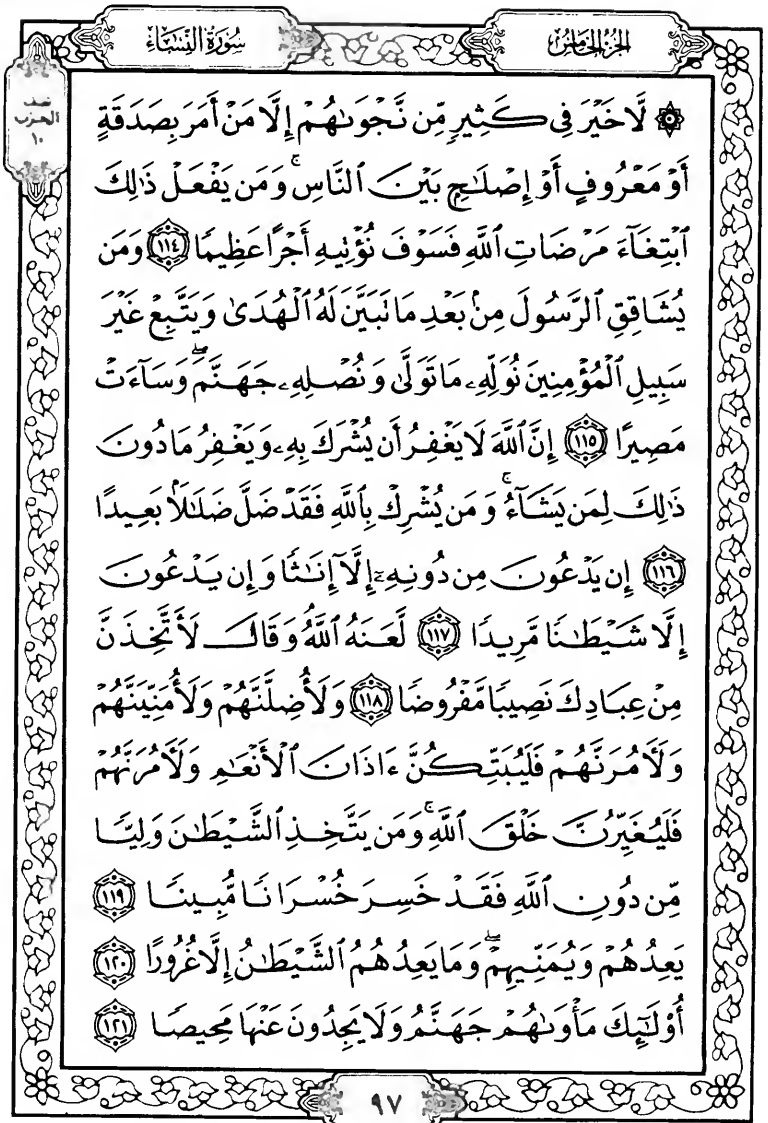 سُورَةُ النِّسَاءِ
الجُزْءُ الخَامِسُ
نصف
الحزب
١٠
۞ لَّا خَيْرَ فِى كَثِيرٍ مِّن نَّجْوَىٰهُمْ إِلَّا مَنْ أَمَرَ بِصَدَقَةٍ
أَوْ مَعْرُوفٍ أَوْ إِصْلَٰحٍۭ بَيْنَ ٱلنَّاسِ ۚ وَمَن يَفْعَلْ ذَٰلِكَ
ٱبْتِغَآءَ مَرْضَاتِ ٱللَّهِ فَسَوْفَ نُؤْتِيهِ أَجْرًا عَظِيمًا ١١٤ وَمَن
يُشَاقِقِ ٱلرَّسُولَ مِنۢ بَعْدِ مَا تَبَيَّنَ لَهُ ٱلْهُدَىٰ وَيَتَّبِعْ غَيْرَ
سَبِيلِ ٱلْمُؤْمِنِينَ نُوَلِّهِۦ مَا تَوَلَّىٰ وَنُصْلِهِۦ جَهَنَّمَ ۖ وَسَآءَتْ
مَصِيرًا ١١٥ إِنَّ ٱللَّهَ لَا يَغْفِرُ أَن يُشْرَكَ بِهِۦ وَيَغْفِرُ مَا دُونَ
ذَٰلِكَ لِمَن يَشَآءُ ۚ وَمَن يُشْرِكْ بِٱللَّهِ فَقَدْ ضَلَّ ضَلَٰلًۢا بَعِيدًا
١١٦ إِن يَدْعُونَ مِن دُونِهِۦٓ إِلَّآ إِنَٰثًا وَإِن يَدْعُونَ
إِلَّا شَيْطَٰنًا مَّرِيدًا ١١٧ لَّعَنَهُ ٱللَّهُ ۘ وَقَالَ لَأَتَّخِذَنَّ
مِنْ عِبَادِكَ نَصِيبًا مَّفْرُوضًا ١١٨ وَلَأُضِلَّنَّهُمْ وَلَأُمَنِّيَنَّهُمْ
وَلَءَامُرَنَّهُمْ فَلَيُبَتِّكُنَّ ءَاذَانَ ٱلْأَنْعَٰمِ وَلَءَامُرَنَّهُمْ
فَلَيُغَيِّرُنَّ خَلْقَ ٱللَّهِ ۚ وَمَن يَتَّخِذِ ٱلشَّيْطَٰنَ وَلِيًّا
مِّن دُونِ ٱللَّهِ فَقَدْ خَسِرَ خُسْرَانًا مُّبِينًا ١١٩
يَعِدُهُمْ وَيُمَنِّيهِمْ ۖ وَمَا يَعِدُهُمُ ٱلشَّيْطَٰنُ إِلَّا غُرُورًا ١٢٠
أُو۟لَٰٓئِكَ مَأْوَىٰهُمْ جَهَنَّمُ وَلَا يَجِدُونَ عَنْهَا مَحِيصًا ١٢١
٩٧